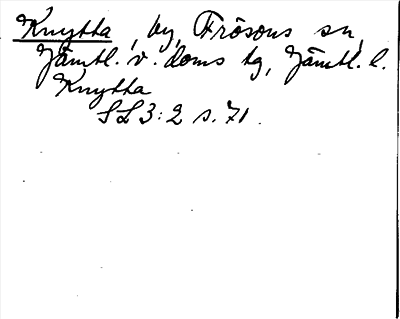 Knytta, by, Frösöns sn,
Jämtl. v. doms tg, Jämtl. l.
Knytta
SL 3:2 s. 71.